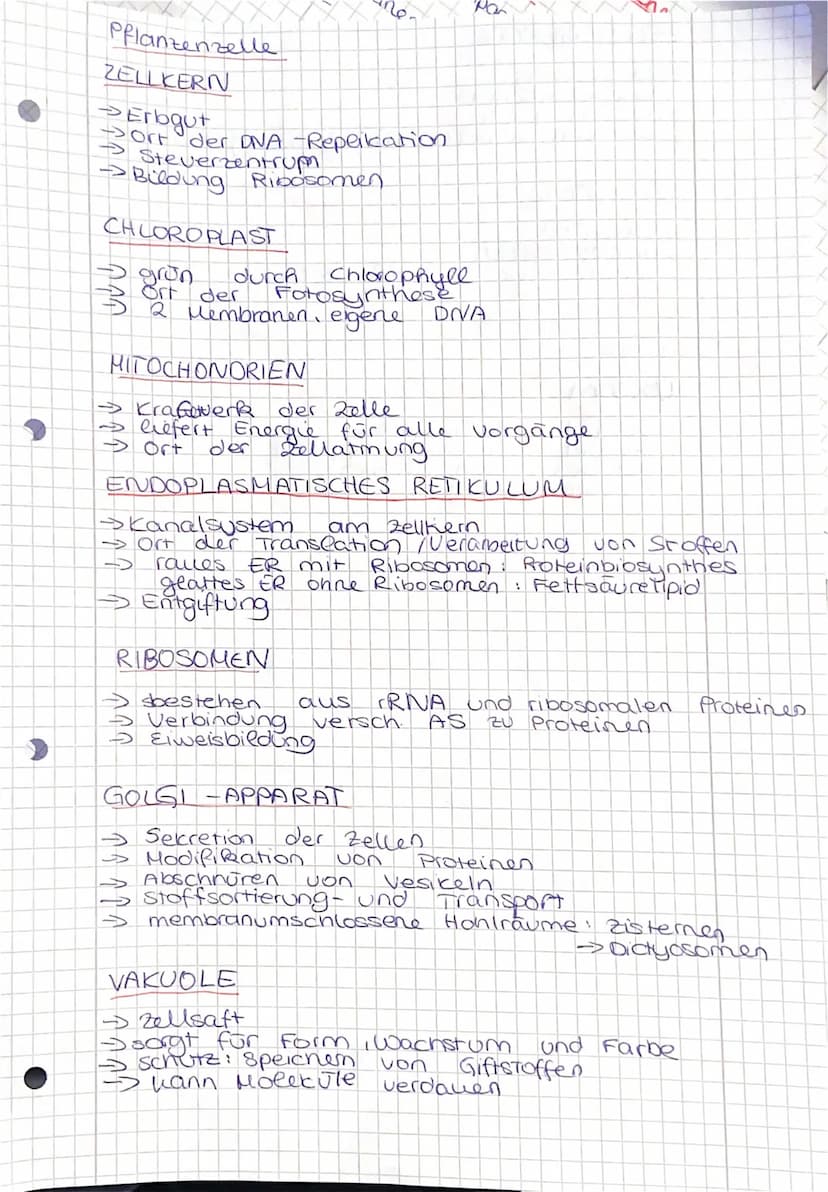 Pflanzenzelle
ZELLKERN
→ Erbgut
→ Ort der DNA-Replikation
→ Steuerzentrum
→ Bildung Ribosomen
CHLOROPLAST
→ grün durch Chlorophyll
→ Ort der Fotosynthese
→ 2 Membranen, eigene DNA
MITOCHONDRIEN
→ Kraftwerk der Zelle
→ liefert Energie für alle Vorgänge
→ Ort der Zellatmung
ENDOPLASMATISCHES RETIKULUM
→ Kanalsystem am Zellkern
→ Ort der Translation / Verarbeitung von Stoffen
→ raues ER mit Ribosomen: Proteinbiosynthes
glattes ER ohne Ribosomen: Fettsäure
→ Entgiftung
RIBOSOMEN
→ bestehen aus rRNA und ribosomalen Proteinen
→ Verbindung versch. AS zu Proteinen
→ Eiweisbildung
GOLGI-APPARAT
→ Sekretion der Zellen
→ Modifikation von Proteinen
→ Abschnüren von Vesikeln
→ Stoffsortierung- und Transport
→ membranumschlossene Hohlräume: Zisternen
→ Dictyosomen
VAKUOLE
→ Zellsaft
→ sorgt für Form, Wachstum und Farbe
→ Schutz: Speichern von Giftstoffen
→ kann Moleküle verdauen